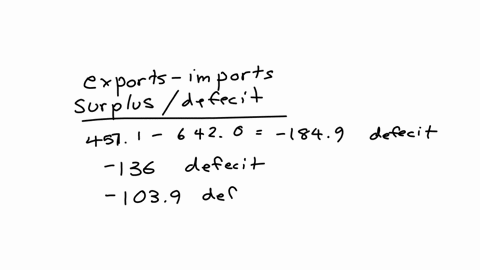 exports-imports
surplus/defecit
457.1 - 642.0 = -184.9 defecit
-136 defecit
-103.9 def